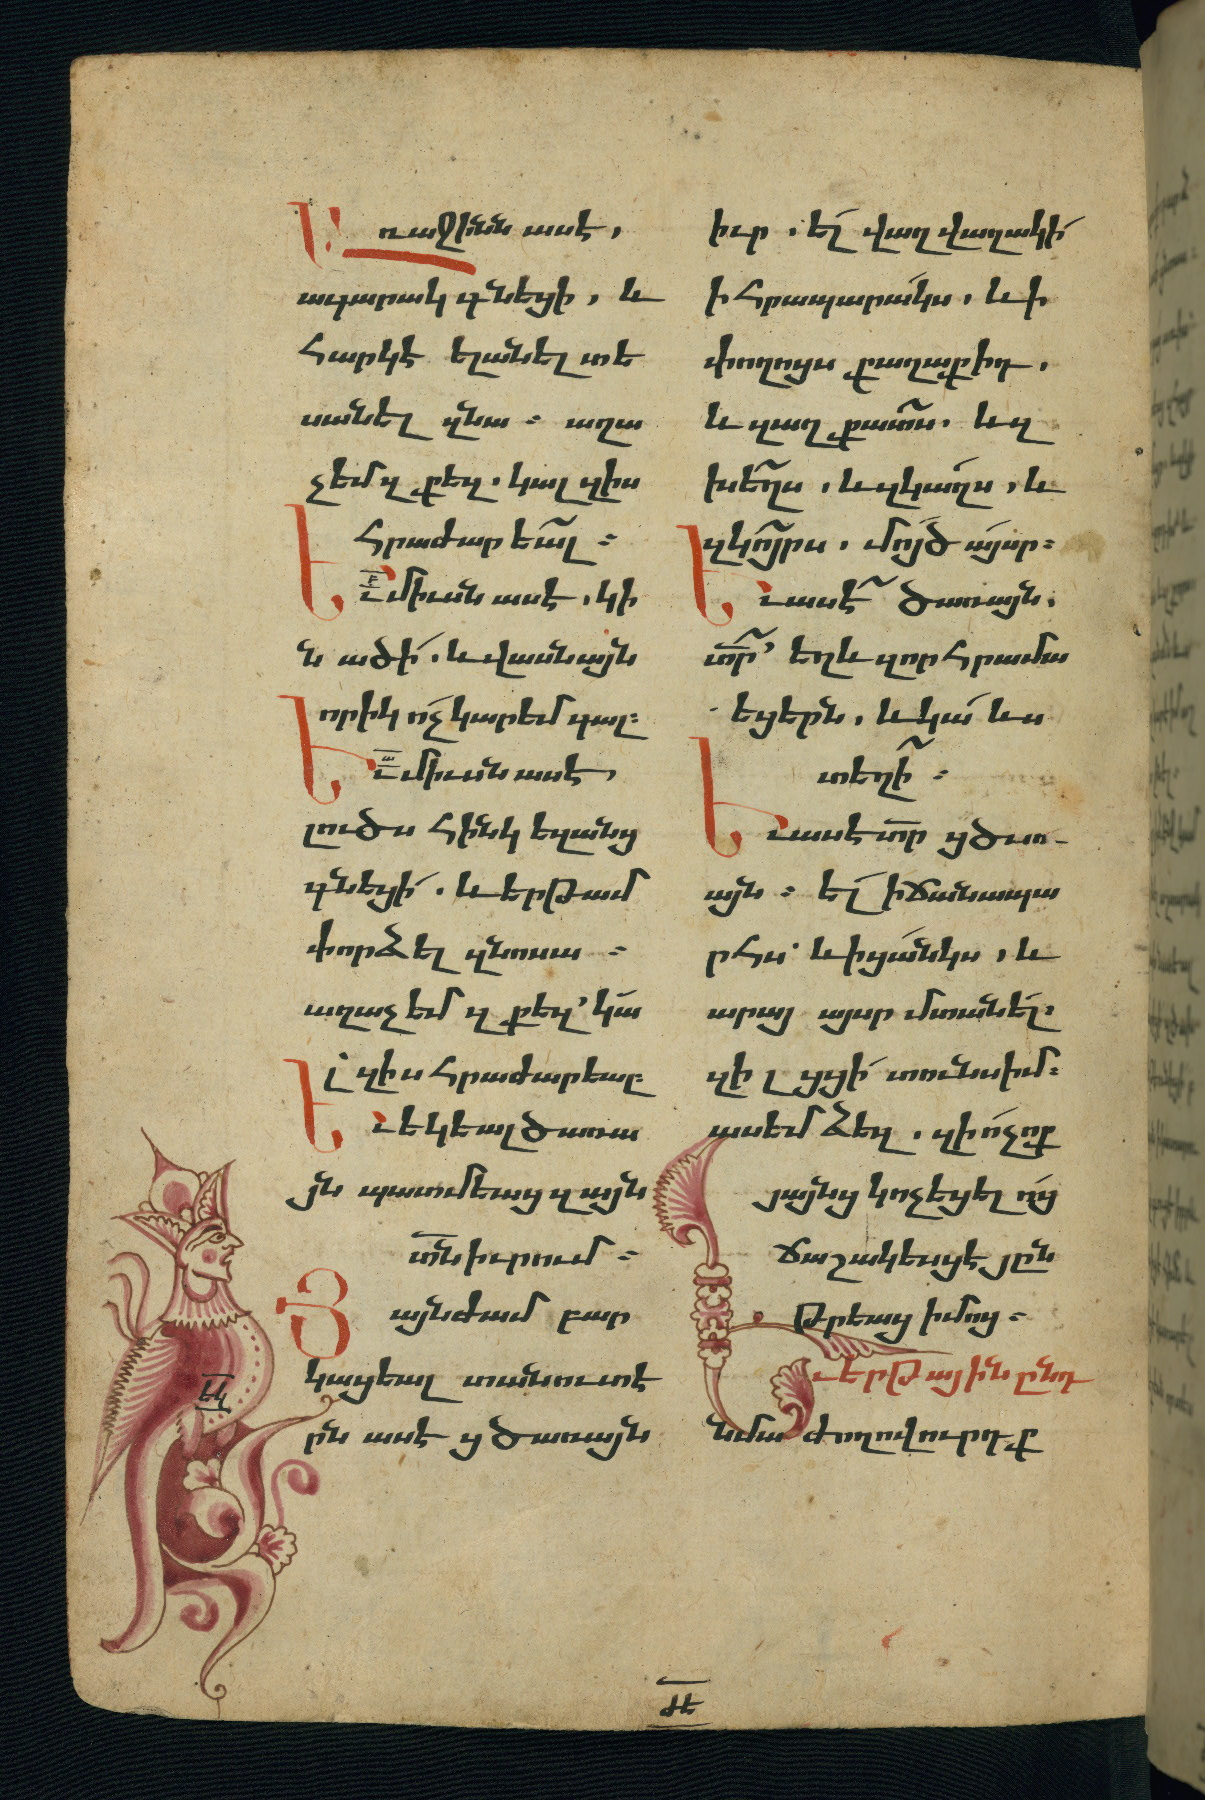 Առաջինն ասէ,
ագարակ գնեցի, և
հարկէ ելանել տե
սանել զնա։ աղա
չեմ զքեզ. կալ զիս
հրաժարեալ։
Եւ միւսն ասէ, կի
ն ածի. և վասն այն
որիկ ոչ կարեմ գալ։
Եւ միւսն ասէ,
լուծս հինկ եզանց
գնեցի. և երթամ
փորձել զնոսա։
աղաչեմ զքեզ՚ կա
լ զիս հրաժարեալ։
Եւ եկեալ ծառա
յն պատմեաց զայն
տ՜ն իւրում։
Յայնժամ բար
կացեալ տանուտէ
րն ասէ ց ծառայն
իւր. ել վաղվաղակի
ի հրապարակս, և ի
փողոցս քաղաքիդ,
և զաղքատս. և զ
խեղս, և զկաղս, և
զկոյրս, մոյծ այսր։
Եւ ասէ ծառայն,
տ՜ր՚ եղև զոր հրամա
եցերն, և կա ևս
տեղի։
Եւ ասէ տ՜ր ց ծառ
այն։ ել ի ճանապա
րհս՚ և ի ցանկս, և
արայ այսր մտանել։
զի լցցի տունս իմ։
ասեմ ձեզ, զի ոչ ոք
յայնց կոչեցելոց
ճաշակեսցէ յըն
թրեաց իմոց։
Եւ երթային ընդ
նմա ժողովուրդք
ԺԵ